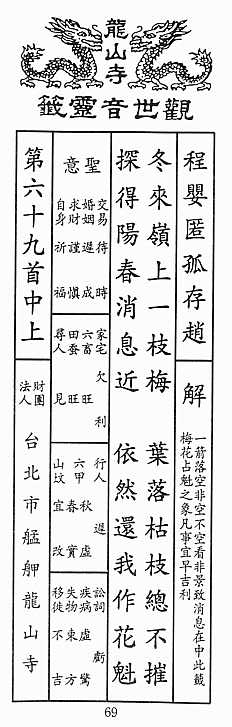 龍山寺
觀世音靈籤
程嬰匿孤存趙
解
一箭落空非空不空看非景致消息在中此籤
梅花占魁之象凡事宜早吉利
冬來嶺上一枝梅 葉落枯枝總不摧
探得陽春消息近 依然還我作花魁
聖意
交易 待時
婚姻 遲成
求財 謹慎
自身 祈福
家宅 欠利
六畜 旺
田蠶 旺
尋人 見
行人 遲
六甲 秋虛 春實
山墳 宜改
訟詞 虧
疾病 虛驚
失物 東方
移徙 不吉
第六十九首中上
財團
法人
台北市艋舺龍山寺
69